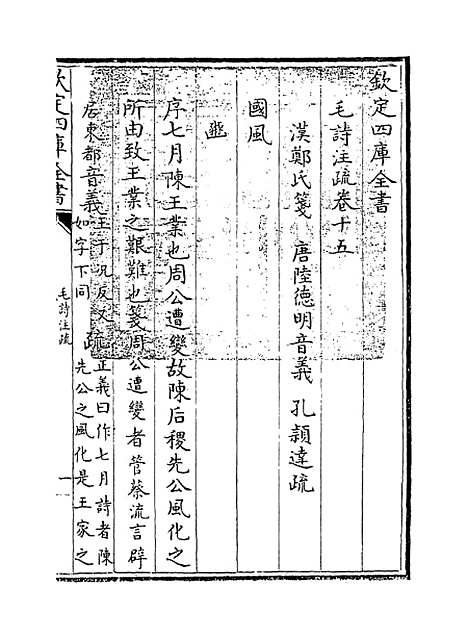 欽定四庫全書
毛詩注疏卷十五
漢鄭氏箋 唐陸德明音義 孔穎達疏
國風
豳
序七月陳王業也周公遭變故陳后稷先公風化之
所由致王業之艱難也箋周公遭變者管蔡流言辟
居東都音義王于况反又如字下同疏正義曰作七月詩者陳先公之風化是王家之
欽定四庫全書
毛詩注疏
一